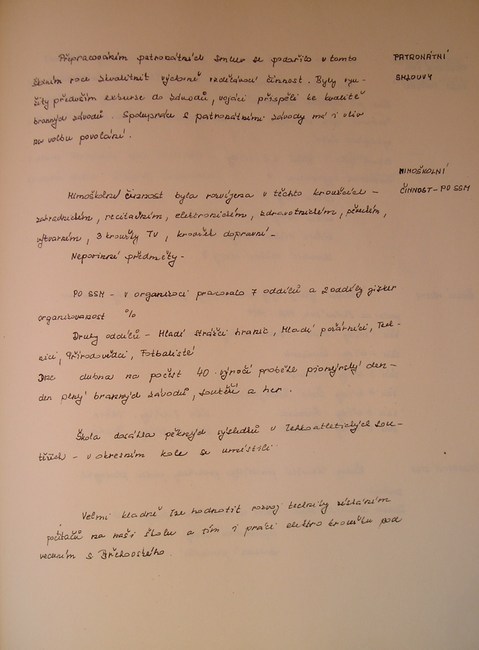 Přepracováním patronátních smluv se podařilo v tomto
školním roce zkvalitnit výchovně vzdělávací činnost. Byly vyu-
žity především exkurze do závodů, vojáci přispěli ke kvalitě
branných závodů. Spolupráce s patronátními závody má i vliv
na volbu povolání.
PATRONÁTNÍ
SMLOUVY
Mimoškolní činnost byla rozvíjena v těchto kroužcích -
zahradnickém, recitačním, elektronickém, zdravotnickém, pěveckém,
výtvarném, 3 kroužky TV, kroužek dopravní -
Nepovinné předměty -
MIMOŠKOLNÍ
ČINNOST - PO SSM
PO SSM - v organizaci pracovalo 7 oddílů a 2 oddíly jisker
organizovanost %
Druhy oddílů - Mladí strážci hranic, Mladí požárníci, Tech-
nici, Přírodovědci, Fotbalisté
Dne dubna na počest 40. výročí proběhl pionýrský den -
den plný branných závodů, soutěží a her.
Škola dosáhla pěkných výsledků v lehkoatletických sou-
těžích - v okresním kole se umístili
Velmi kladně lze hodnotit rozvoj techniky získáním
počítačů na naši školu a tím i práci elektro kroužku pod
vedením s.